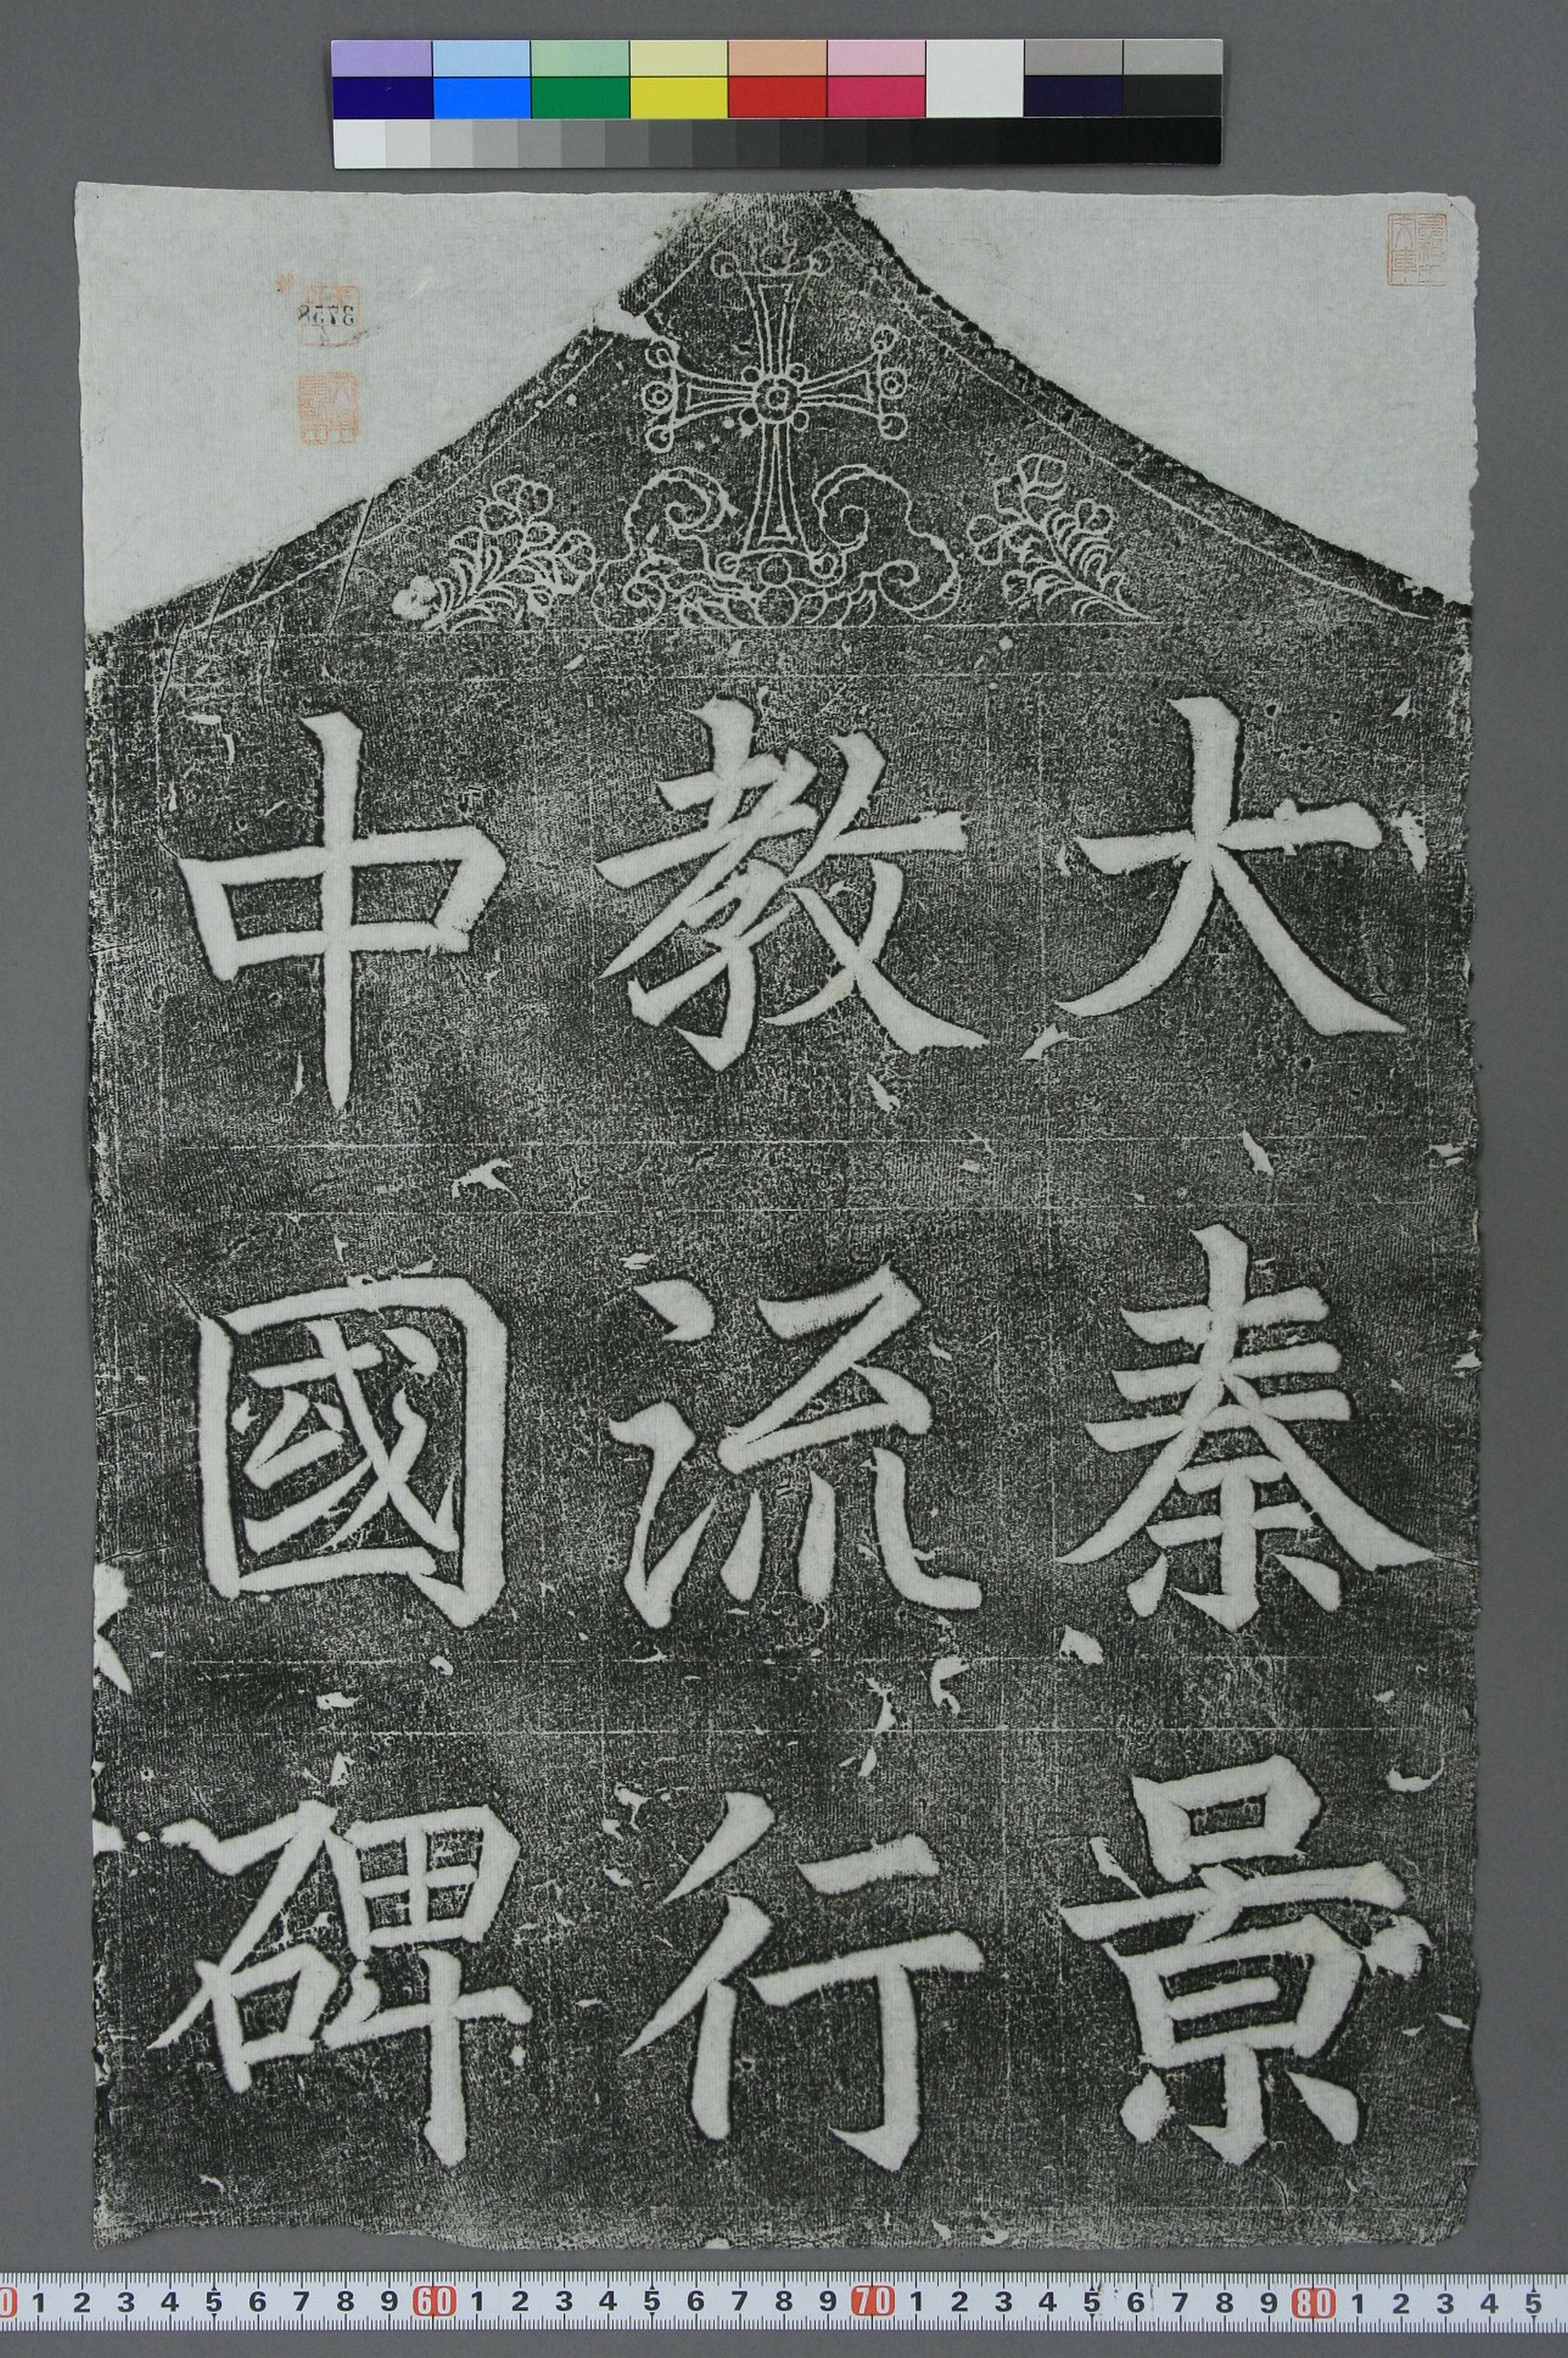 大秦景
教流行
中國碑
3758
0 1 2 3 4 5 6 7 8 9 60 1 2 3 4 5 6 7 8 9 70 1 2 3 4 5 6 7 8 9 80 1 2 3 4 5